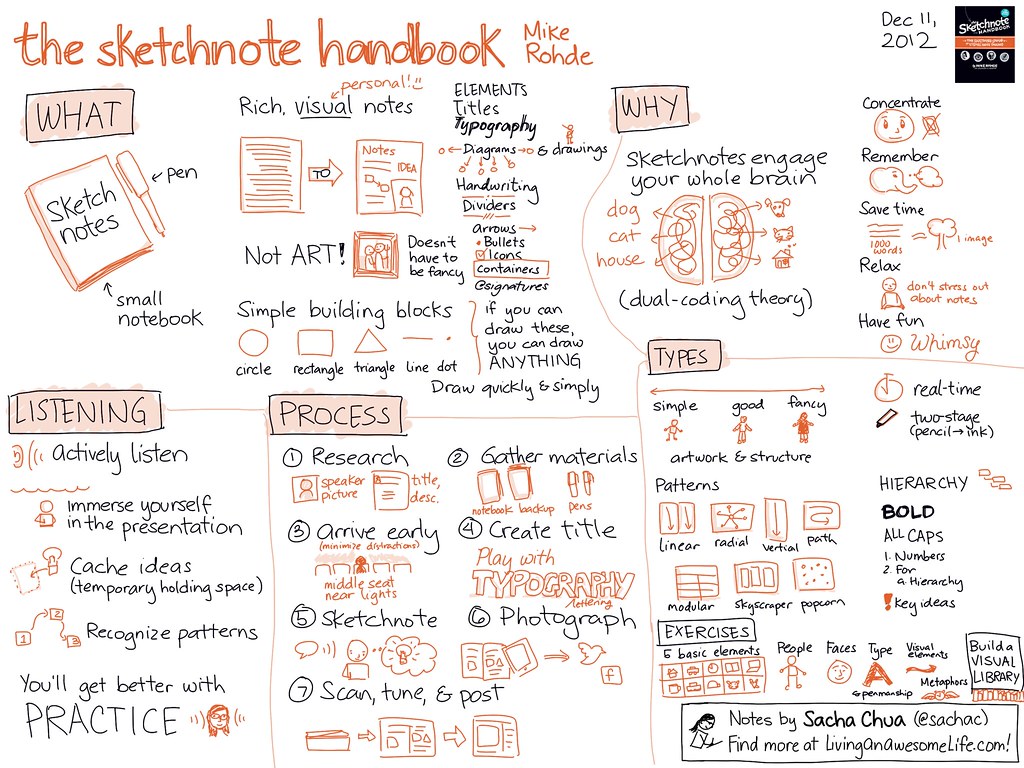 the sketchnote handbook
Mike
Rohde
Dec 11,
2012
Sketchnote
HANDBOOK
WHAT
Sketch
notes
pen
small
notebook
personal!
Rich, visual notes
TO
Notes
IDEA
Not ART!
Doesn't
have to
be fancy
Simple building blocks
circle
rectangle
triangle
line
dot
if you can
draw these,
you can draw
ANYTHING
Draw quickly & simply
ELEMENTS
Titles
Typography
Diagrams
& drawings
Handwriting
Dividers
arrows
• Bullets
Icons
containers
@signatures
WHY
Sketchnotes engage
your whole brain
dog
cat
house
(dual-coding theory)
Concentrate
Remember
Save time
1000
words
=
1 image
Relax
don't stress out
about notes
Have fun
Whimsy
LISTENING
actively listen
Immerse yourself
in the presentation
Cache ideas
(temporary holding space)
1
2
3
Recognize patterns
You'll get better with
PRACTICE
PROCESS
① Research
speaker
picture
title,
desc.
② Gather materials
notebook
backup
pens
③ Arrive early
(minimize distractions)
middle seat
near lights
④ Create title
Play with
TYPOGRAPHY
/lettering
⑤ Sketchnote
⑥ Photograph
f
⑦ Scan, tune, & post
TYPES
simple
good
fancy
artwork & structure
real-time
two-stage
(pencil→ink)
Patterns
linear
radial
vertial
path
modular
skyscraper
popcorn
HIERARCHY
BOLD
ALL CAPS
1. Numbers
2. For
a. Hierarchy
! key ideas
EXERCISES
5 basic elements
People
Faces
Type
& penmanship
Visual
elements
Metaphors
Build a
VISUAL
LIBRARY
Notes by Sacha Chua (@sachac)
Find more at LivingAnAwesomeLife.com!